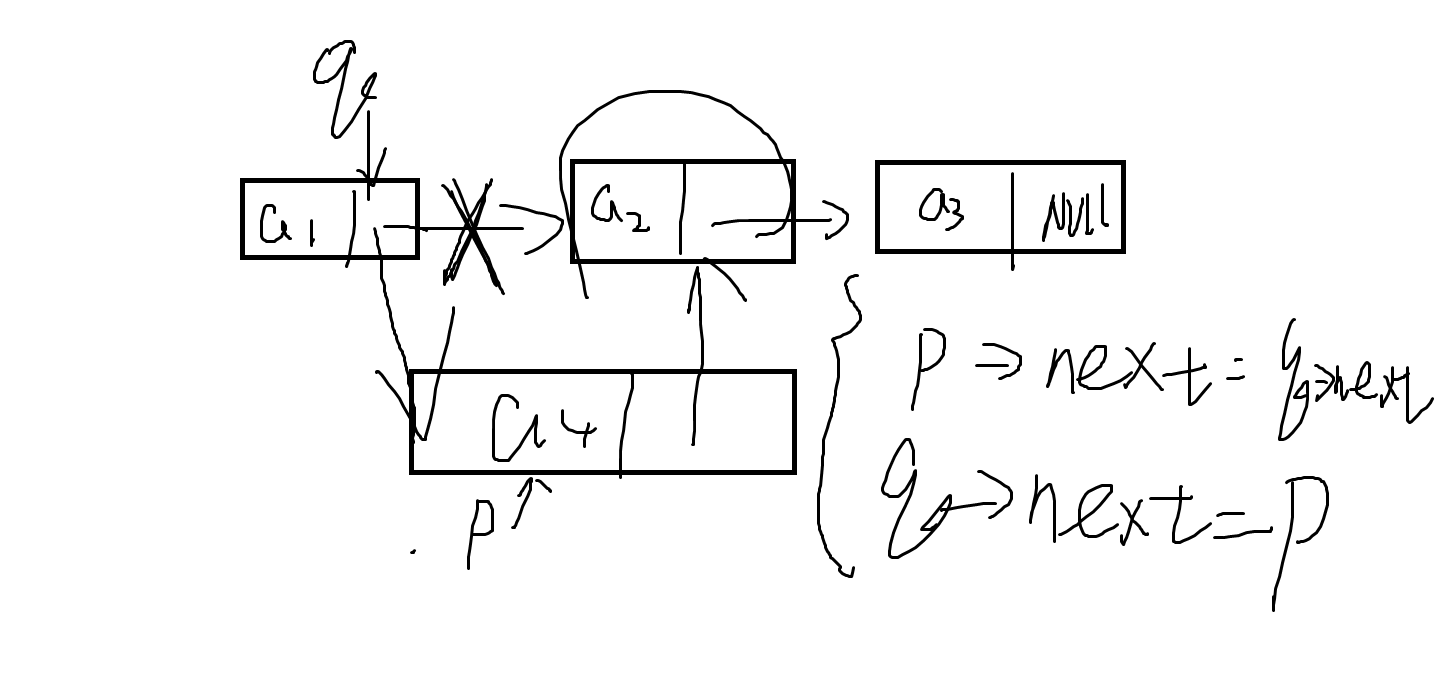 q
a1
a2
a3 NUll
P → next = q→next
a4
q → next = P
P